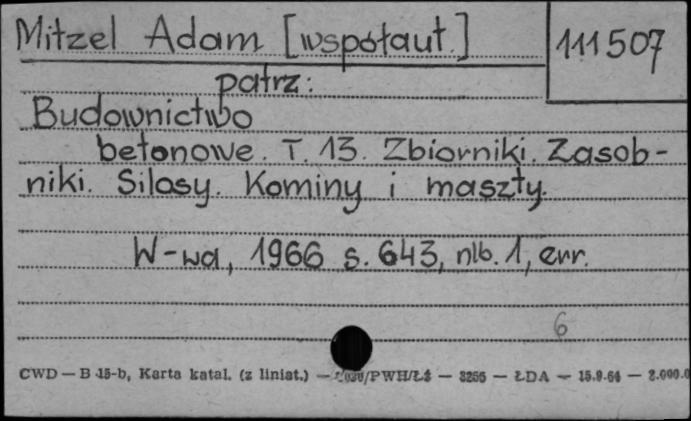 Mitzel Adam [współaut.] 111507
patrz:
Budownictwo
betonowe. T. 13. Zbiorniki. Zasob-
niki. Silosy. Kominy i maszty.
W-wa, 1966 s. 643, nlb. 1, err.
6
CWD — B 15-b, Karta katal. (z liniat.) — /PWH/Łż — 3255 — ŁDA — 15.9.64 — 2.000.0